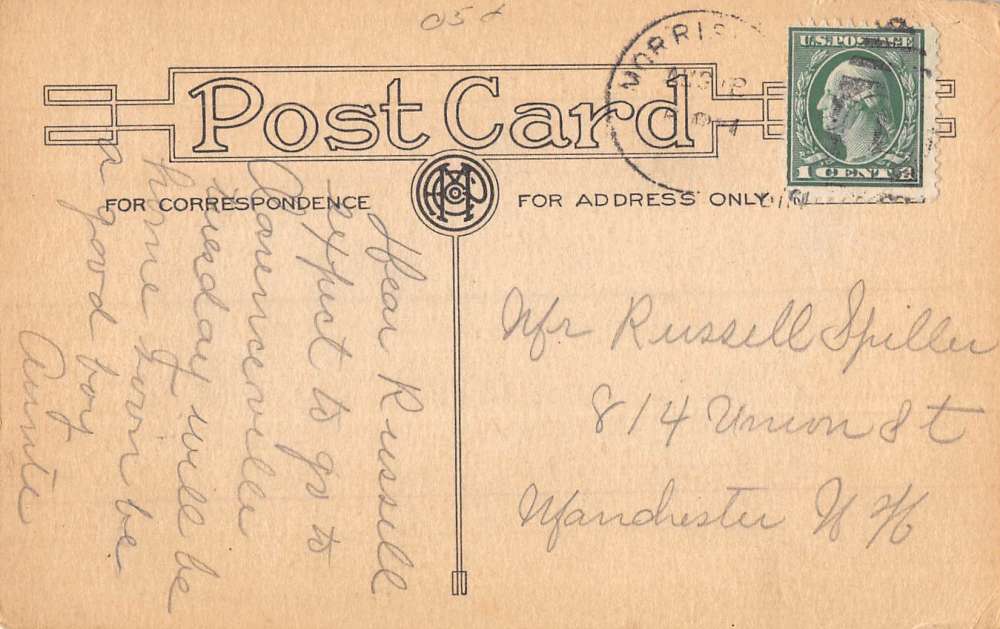 05¢
MORRIS
AUG
U.S. POSTAGE
1 CENT 1
Post Card
FOR CORRESPONDENCE
FOR ADDRESS ONLY
Dear Russell
expect to go to
tuesday will be
home town be
a good boy
Aunte
Mr Russell Spiller
814 Union St
Manchester N H